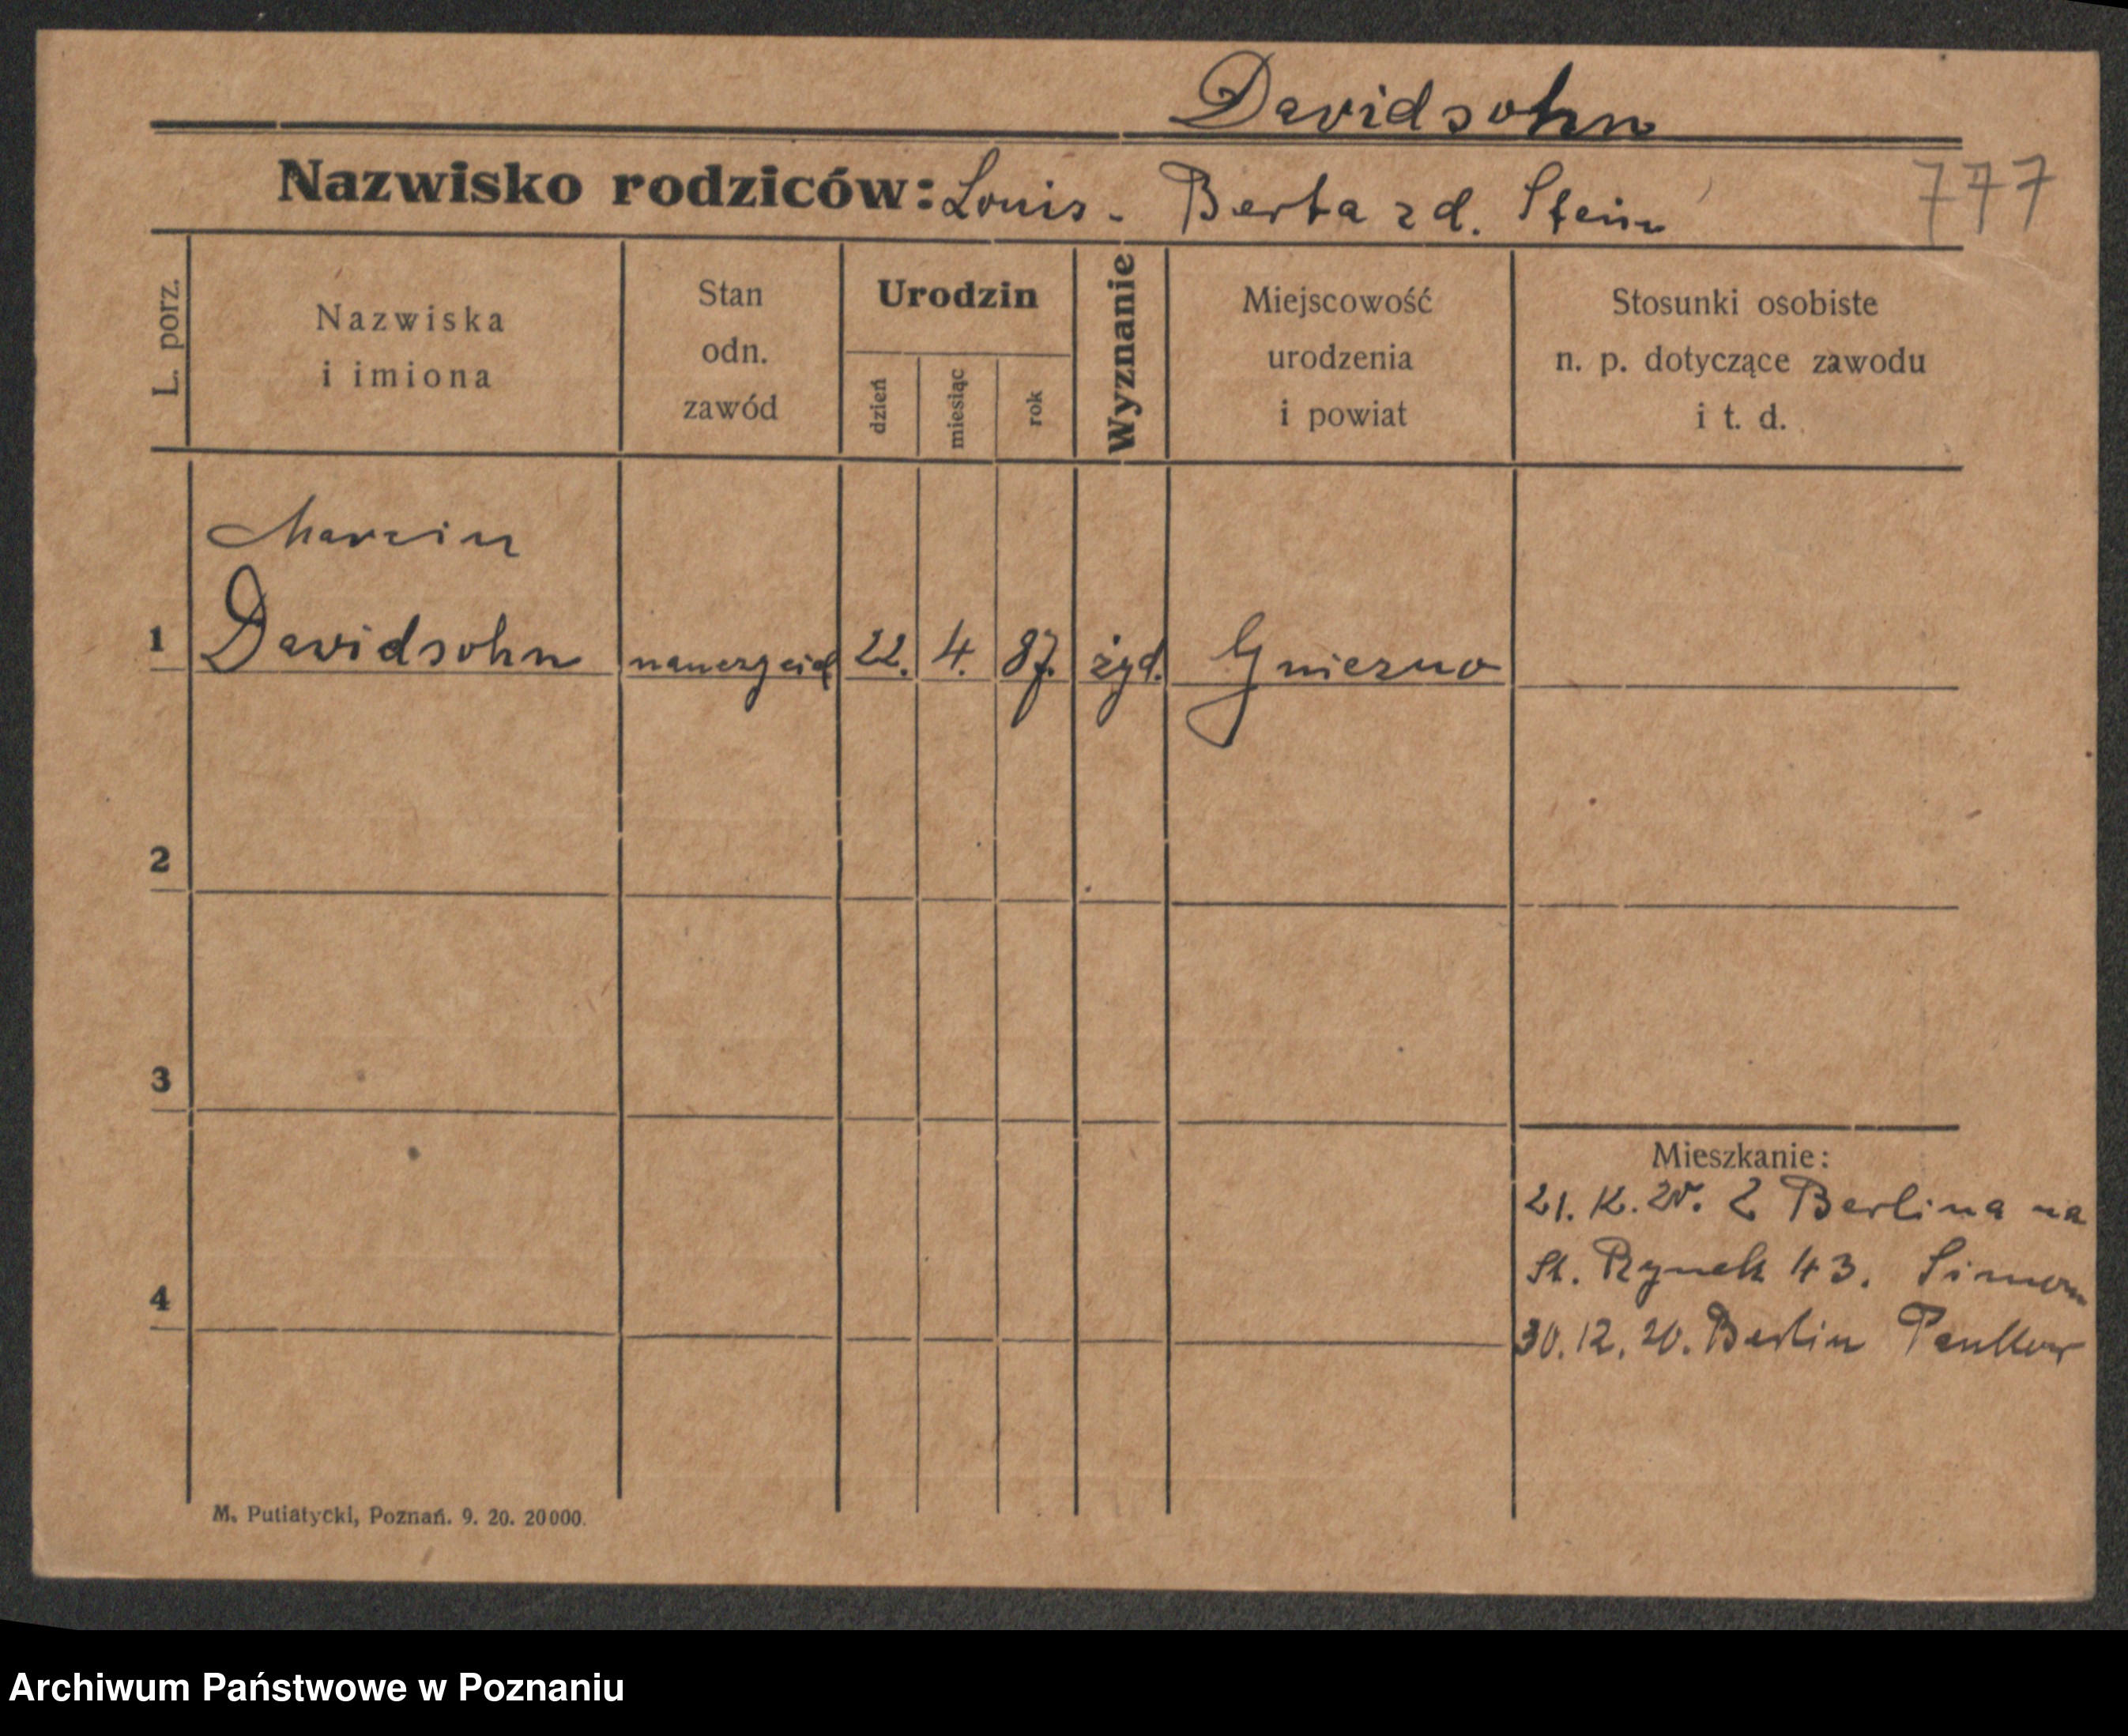 Davidsohn
Nazwisko rodziców: Louis - Berta zd. Stein
777
L. porz.
Nazwiska
i imiona
Stan
odn.
zawód
Urodzin
dzień
miesiąc
rok
Wyznanie
Miejscowość
urodzenia
i powiat
Stosunki osobiste
n. p. dotyczące zawodu
i t. d.
Marcin
1 Davidsohn nauczyciel 22. 4. 87. żyd. Gniezno
2
3
4
Mieszkanie:
21. 12. 20. Z Berlina na
St. Rynek 43. Simon
30. 12. 20. Berlin Pankow
M. Putiatycki, Poznań. 9. 20. 20000.
Archiwum Państwowe w Poznaniu